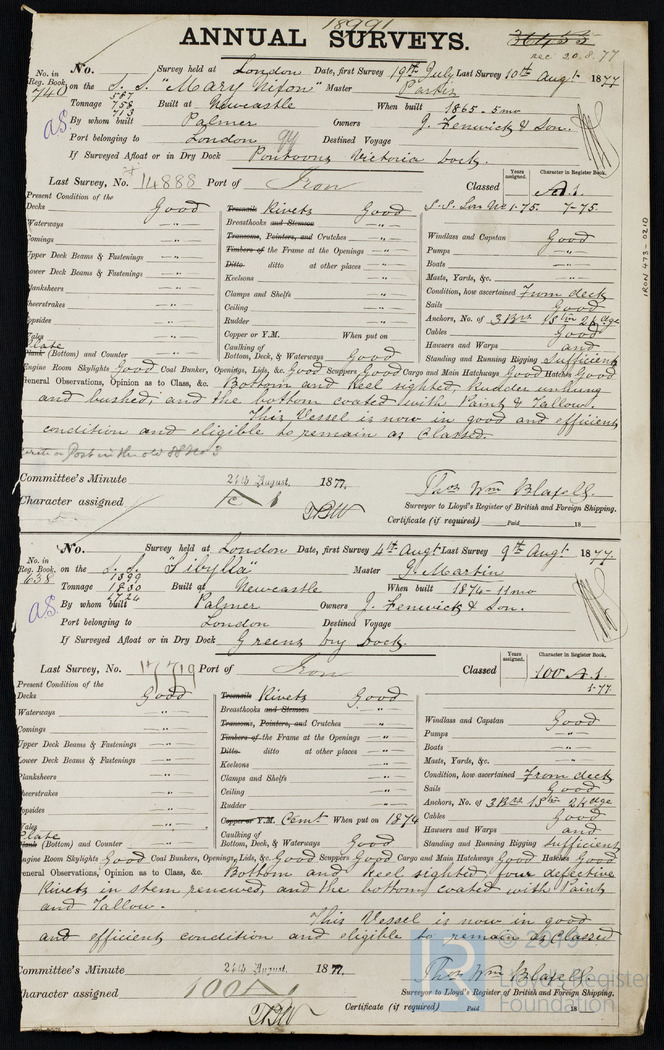 18991
ANNUAL SURVEYS.
36455
rec 20.8.77
No. in Reg. Book. No. Survey held at London Date, first Survey 19th July Last Survey 10th Augt 1877
740 on the S. S. "Mary Nixon" Master Parkin
587
Tonnage 758 Built at Newcastle When built 1865 - 5mo
713
By whom built Palmer Owners J. Fenwick & Son.
Port belonging to London Destined Voyage
If Surveyed Afloat or in Dry Dock Pontoons Victoria Dock.
Last Survey, No. 14888 Port of Iron Classed Years assigned. Character in Register Book. A.1.
S.S. Lon No 1-75. 7-75.
Present Condition of the
Decks Good Treenails Rivets Good
Waterways " Breasthooks and Stemson "
Comings " Transoms, Pointers, and Crutches " Windlass and Capstan Good
Upper Deck Beams & Fastenings " Timbers of the Frame at the Openings " Pumps "
Lower Deck Beams & Fastenings " Ditto ditto at other places " Boats "
Planksheers " Keelsons " Masts, Yards, &c. "
Sheerstrakes " Clamps and Shelfs " Condition, how ascertained From deck
Topsides " Ceiling " Sails Good
Wales " Rudder " Anchors, No. of 3 Brs 1 Stm 2 Kdge
Plate Copper or Y.M. When put on Cables Good
Plank (Bottom) and Counter " Caulking of Bottom, Deck, & Waterways Good Hawsers and Warps and
Standing and Running Rigging Sufficient
Engine Room Skylights Good Coal Bunker, Openings, Lids, &c. Good Scuppers Good Cargo and Main Hatchways Good Hatches Good
General Observations, Opinion as to Class, &c. Bottom and Keel sighted, Rudder unhung
and bushed, and the bottom coated with Paint & Tallow.
This Vessel is now in good and efficient
condition and eligible to remain as Classed.
Committee's Minute 21th August. 1877.
Character assigned
Thos Wm Blaxell.
Surveyor to Lloyd's Register of British and Foreign Shipping.
Certificate (if required) Paid 18
No. in Reg. Book. No. Survey held at London Date, first Survey 4th Augt Last Survey 9th Augt 1877.
638 on the S. S. "Sibylla" Master J. Martin
1399
Tonnage 1830 Built at Newcastle When built 1874 - 11mo
1724
By whom built Palmer Owners J. Fenwick & Son.
Port belonging to London Destined Voyage
If Surveyed Afloat or in Dry Dock Greens Dry Dock.
Last Survey, No. 17719 Port of Iron Classed Years assigned. Character in Register Book. 100 A.1.
1.77
Present Condition of the
Decks Good Treenails Rivets Good
Waterways " Breasthooks and Stemson "
Comings " Transoms, Pointers, and Crutches " Windlass and Capstan Good
Upper Deck Beams & Fastenings " Timbers of the Frame at the Openings " Pumps "
Lower Deck Beams & Fastenings " Ditto ditto at other places " Boats "
Planksheers " Keelsons " Masts, Yards, &c. "
Sheerstrakes " Clamps and Shelfs " Condition, how ascertained From deck
Topsides " Ceiling " Sails Good
Wales " Rudder " Anchors, No. of 3 Brs 1 Stm 2 Kdge
Plate Copper or Y.M. Cemt When put on 1874 Cables Good
Plank (Bottom) and Counter " Caulking of Bottom, Deck, & Waterways Good Hawsers and Warps and
Standing and Running Rigging Sufficient
Engine Room Skylights Good Coal Bunkers, Openings, Lids, &c. Good Scuppers Good Cargo and Main Hatchways Good Hatches Good
General Observations, Opinion as to Class, &c. Bottom and Keel sighted, four defective
Rivets in stem renewed, and the bottom coated with Paint
and Tallow.
This Vessel is now in good
and efficient condition and eligible to remain as Classed
Committee's Minute 21th August. 1877.
Character assigned 100A1
Thos Wm Blaxell.
Surveyor to Lloyd's Register of British and Foreign Shipping.
Certificate (if required) Paid 18
IRON 473-0210
© 2019
Lloyd's Register
Foundation